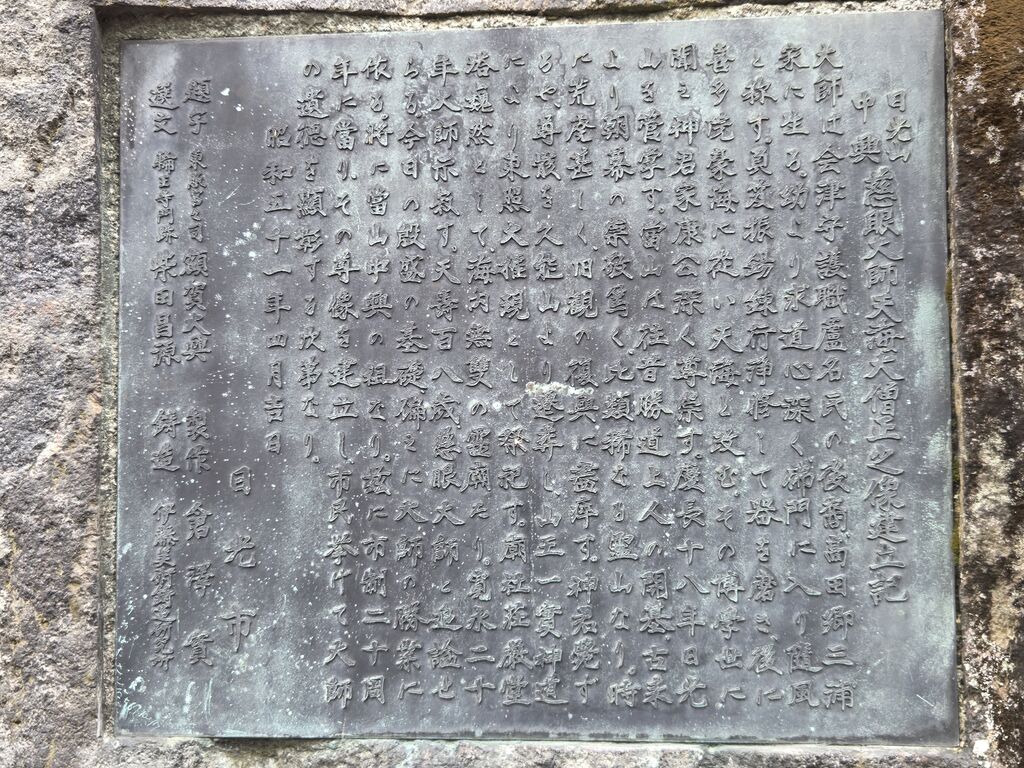 日光山
中興 慈眼大師天海大僧正之像建立記
大師は会津守護職盧名氏の後裔高田郷三浦
家に生る。幼より求道心深く佛門に入り随風
と称す。真荃振錫錬行浄修して器を磨き、後に
喜多院豪海に從い天海と改む。その博学世に
聞え神君家康公深く尊崇す。慶長十八年日光
山を管学す。當山は往昔勝道上人の開基、古来
より朝幕の崇敬篤く比類稀なる聖山なり。時
に荒廃甚しく、旧観の復興に盡瘁す。神君薨ず
るや、尊骸を久能山より遷葬し山王一實神道
により東照大権現として祭祀す。廟社荘厳堂
塔巍然として海内無雙の霊廟たり。寛永二十
年大師示寂す。天壽百八歳慈眼大師と追諡せ
らる。今日の殷盛の基礎偏えに大師の勝業に
依る。将に當山中興の祖なり。茲に市制二十周
年に當り、その尊像を建立し市民挙げて大師
の遺徳を顕彰する次第なり。
昭和五十一年四月吉日
日光市
題字 東照宮宮司 額賀大興 製作 倉澤實
選文 輪王寺門跡 柴田昌源 鋳造 伊藤美術鋳造